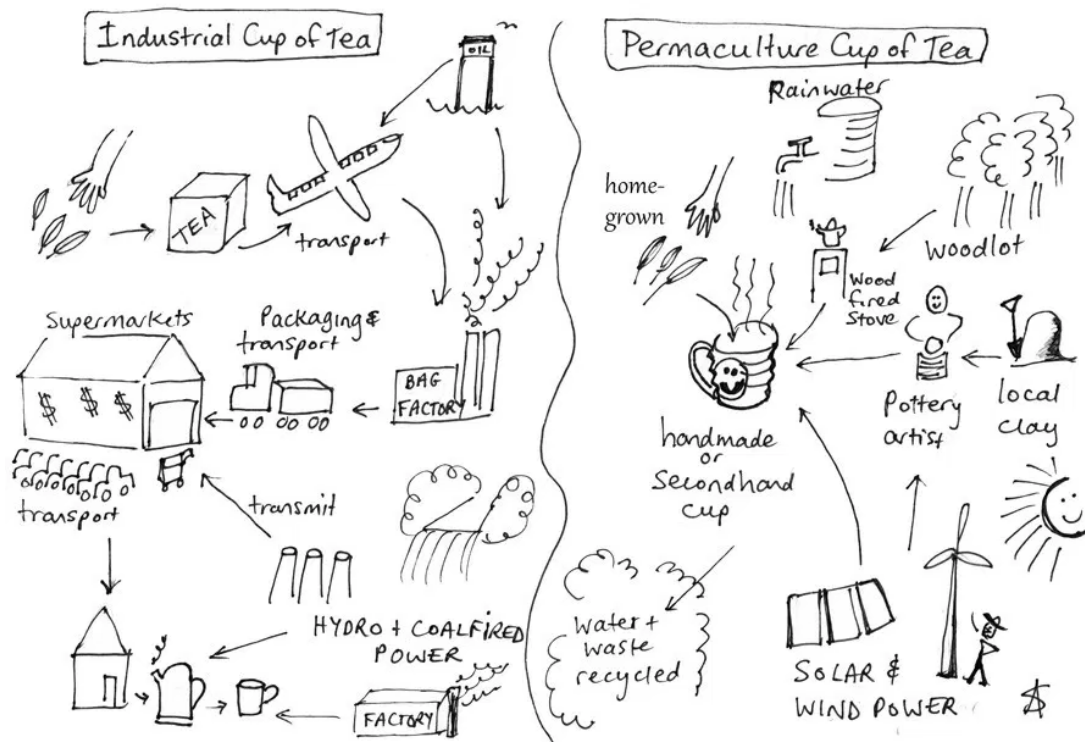 Industrial Cup of Tea
OIL
TEA
transport
Supermarkets
Packaging &
transport
BAG
FACTORY
$ $ $
transport
transmit
HYDRO + COALFIRED
POWER
FACTORY
Permaculture Cup of Tea
Rainwater
home-
grown
woodlot
Wood
fired
stove
handmade
or
Secondhand
cup
Pottery
artist
local
clay
Water +
waste
recycled
SOLAR &
WIND POWER
$